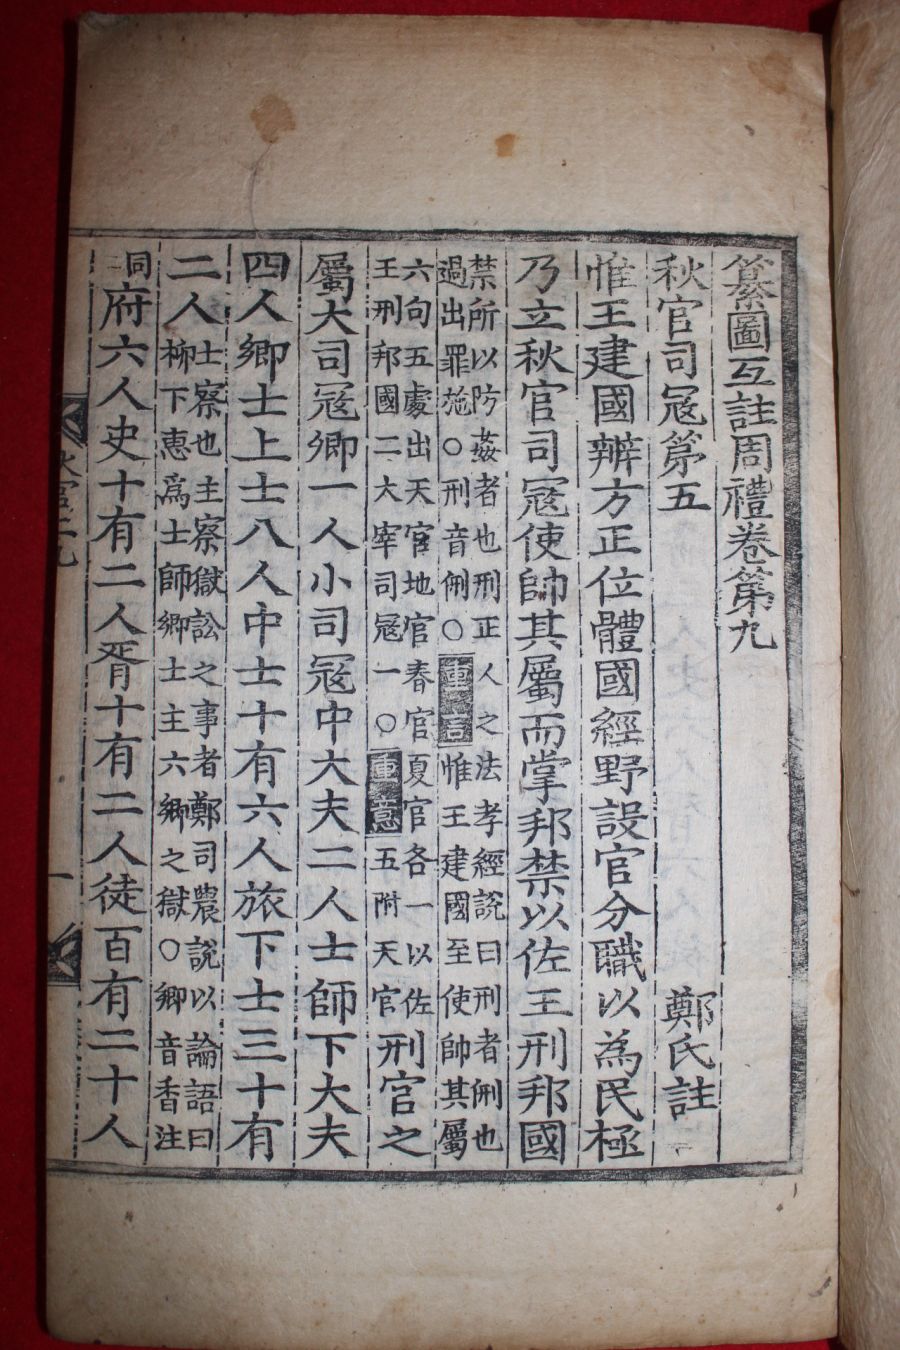 纂圖互註周禮卷第九
秋官司寇第五 鄭氏註
惟王建國辨方正位體國經野設官分職以為民極
乃立秋官司寇使帥其屬而掌邦禁以佐王刑邦國
禁所以防姦者也刑正人之法孝經說曰刑者侀也
過出罪施○刑音侀○重言惟王建國至使帥其屬
六句五處出天官地官春官夏官各一以佐
王刑邦國二大宰司寇一○重意五附天官
刑官之
屬大司寇卿一人小司寇中大夫二人士師下大夫
四人鄉士上士八人中士十有六人旅下士三十有
二人
士察也主察獄訟之事者鄭司農說以論語曰
柳下惠爲士師鄉士主六鄉之獄○鄉音香注
同
府六人史十有二人胥十有二人徒百有二十人